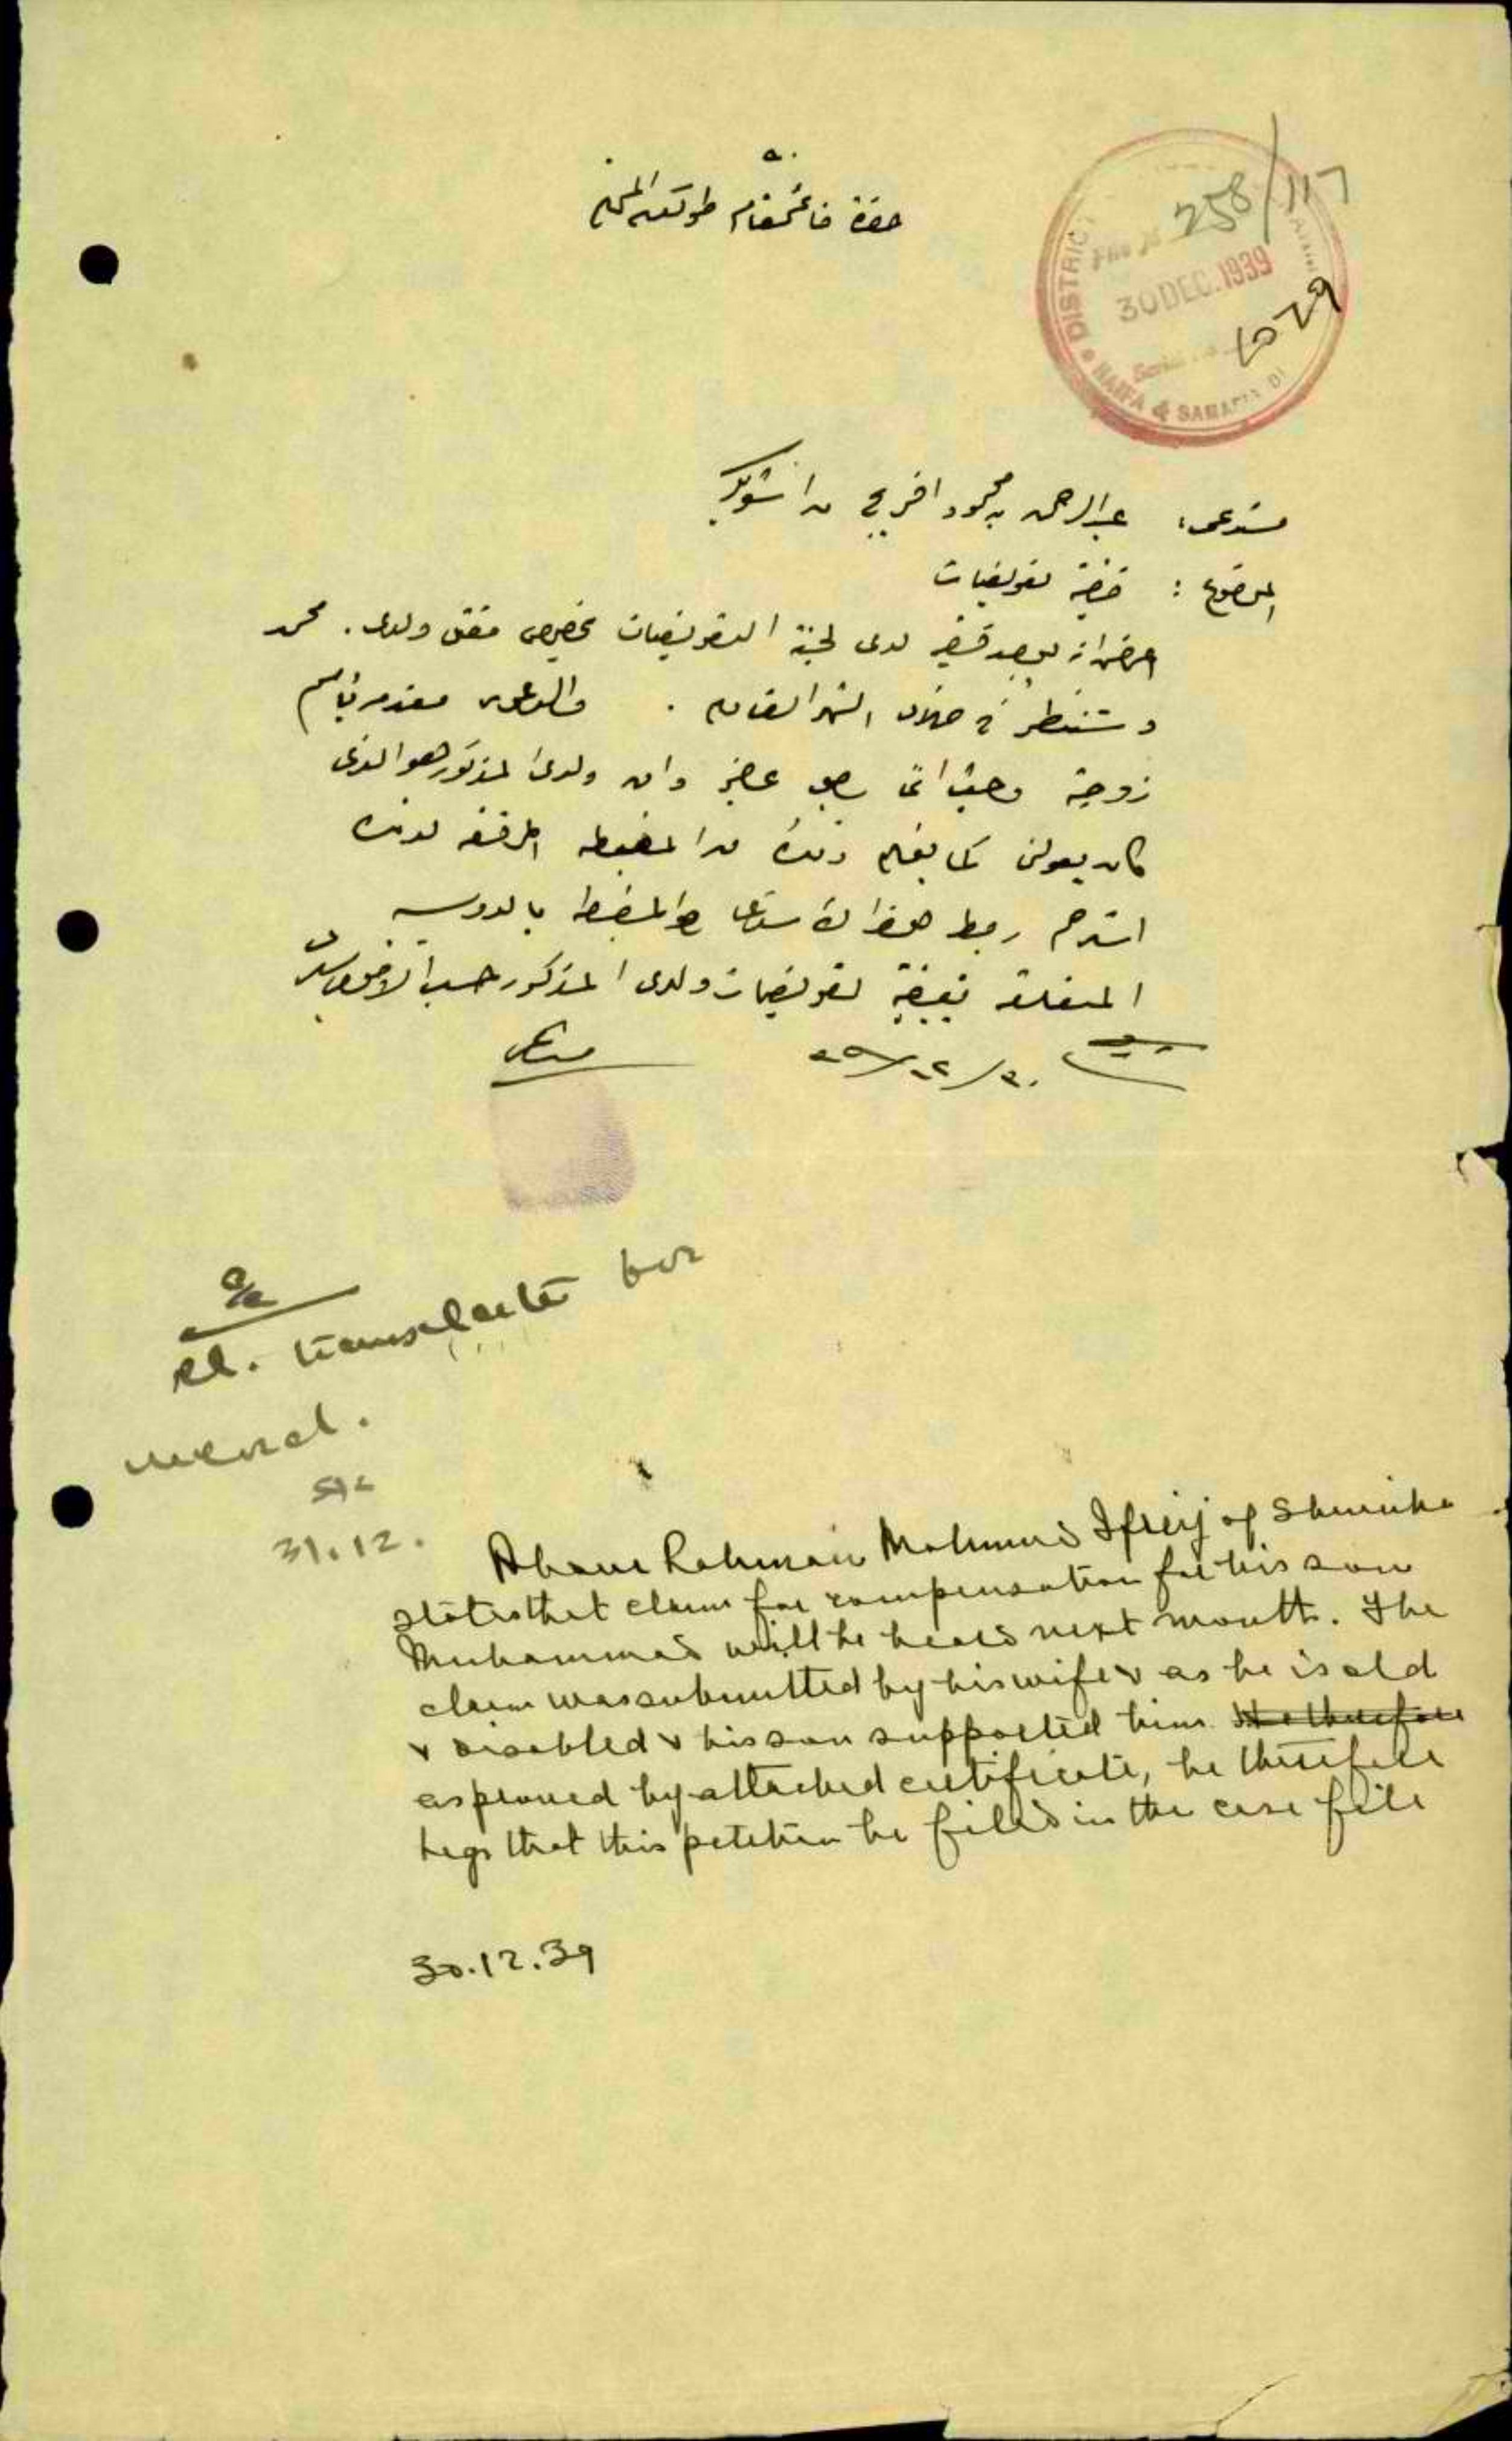 حضرة قائمقام طولكرم المحترم
258/117
DISTRICT
File No
30 DEC. 1939
1029
HAIFA & SAMARIA DI
مستدعي: عبدالرحمن محمود افريج من الشويكة
الموضوع: قضية تعويضات
اعرض انه يوجد قضية لدى لجنة التعويضات بخصوص مقتل ولدي. محمد
وستنظر في خلال الشهر القادم. والدعوى مقدمة باسم
زوجته وحيث اني عاجز وان ولدي المذكور هو الذي
كان يعولني كما يفهم ذلك من المضبطة المرفقة
استرحم ربط هذا الاستدعاء والمضبطة بالدوسيه
المتعلقة بقضية تعويضات ولدي المذكور حسب الاصول سيدي
٣٠/١٢/٣٩
مستدعي
Pl. translate bor
31.12.
Abdur Rahman Mahmud Ifreij of Shuwika
states that claim for compensation for his son
Muhammad will be heard next month. The
claim was submitted by his wife & as he is old
& disabled & his son supported him He therefore
as proved by attached certificate, he therefore
begs that this petition be filed in the case file
30.12.39